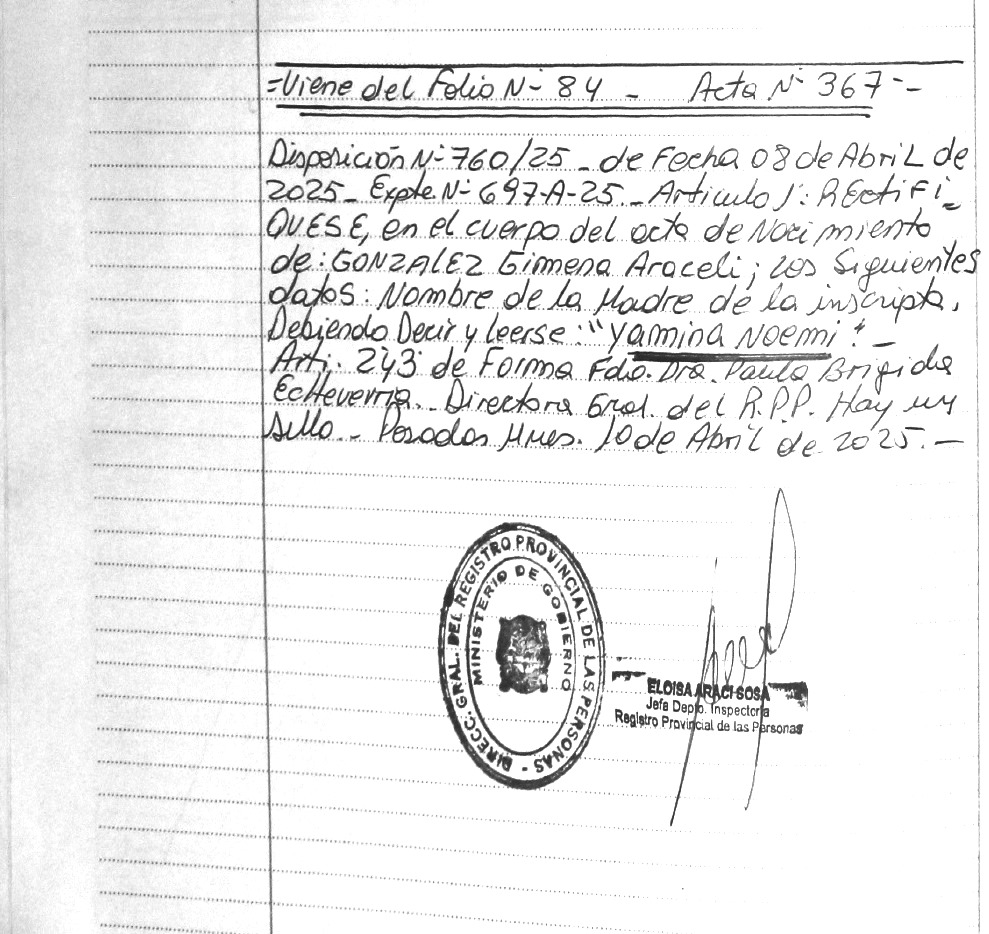 =Viene del Folio N- 84 - Acta N- 367- -
Disposición N- 760/25 - de Fecha 08 de Abril de
2025 - Expte N- 697-A-25 - Articulo 1: REctiFi_
QUESE, en el cuerpo del acta de Nacimiento
de: GONZALEZ Gimena Araceli; los Siguientes
datos: Nombre de la Madre de la inscripta.
Debiendo Decir y leerse: "Yamina Noemi". -
Arti. 2y3 de Forma Fdo. Dra. Paula Brigida
Echeverria. Directora Gral. del R.P.P. Hay un
Sello - Posadas Mnes. 10 de Abril de 2025. -
DIRECC. GRAL. DEL REGISTRO PROVINCIAL DE LAS PERSONAS -
MINISTERIO DE GOBIERNO
ELOISA ARACI SOSA
Jefa Depto. Inspectoria
Registro Provincial de las Personas